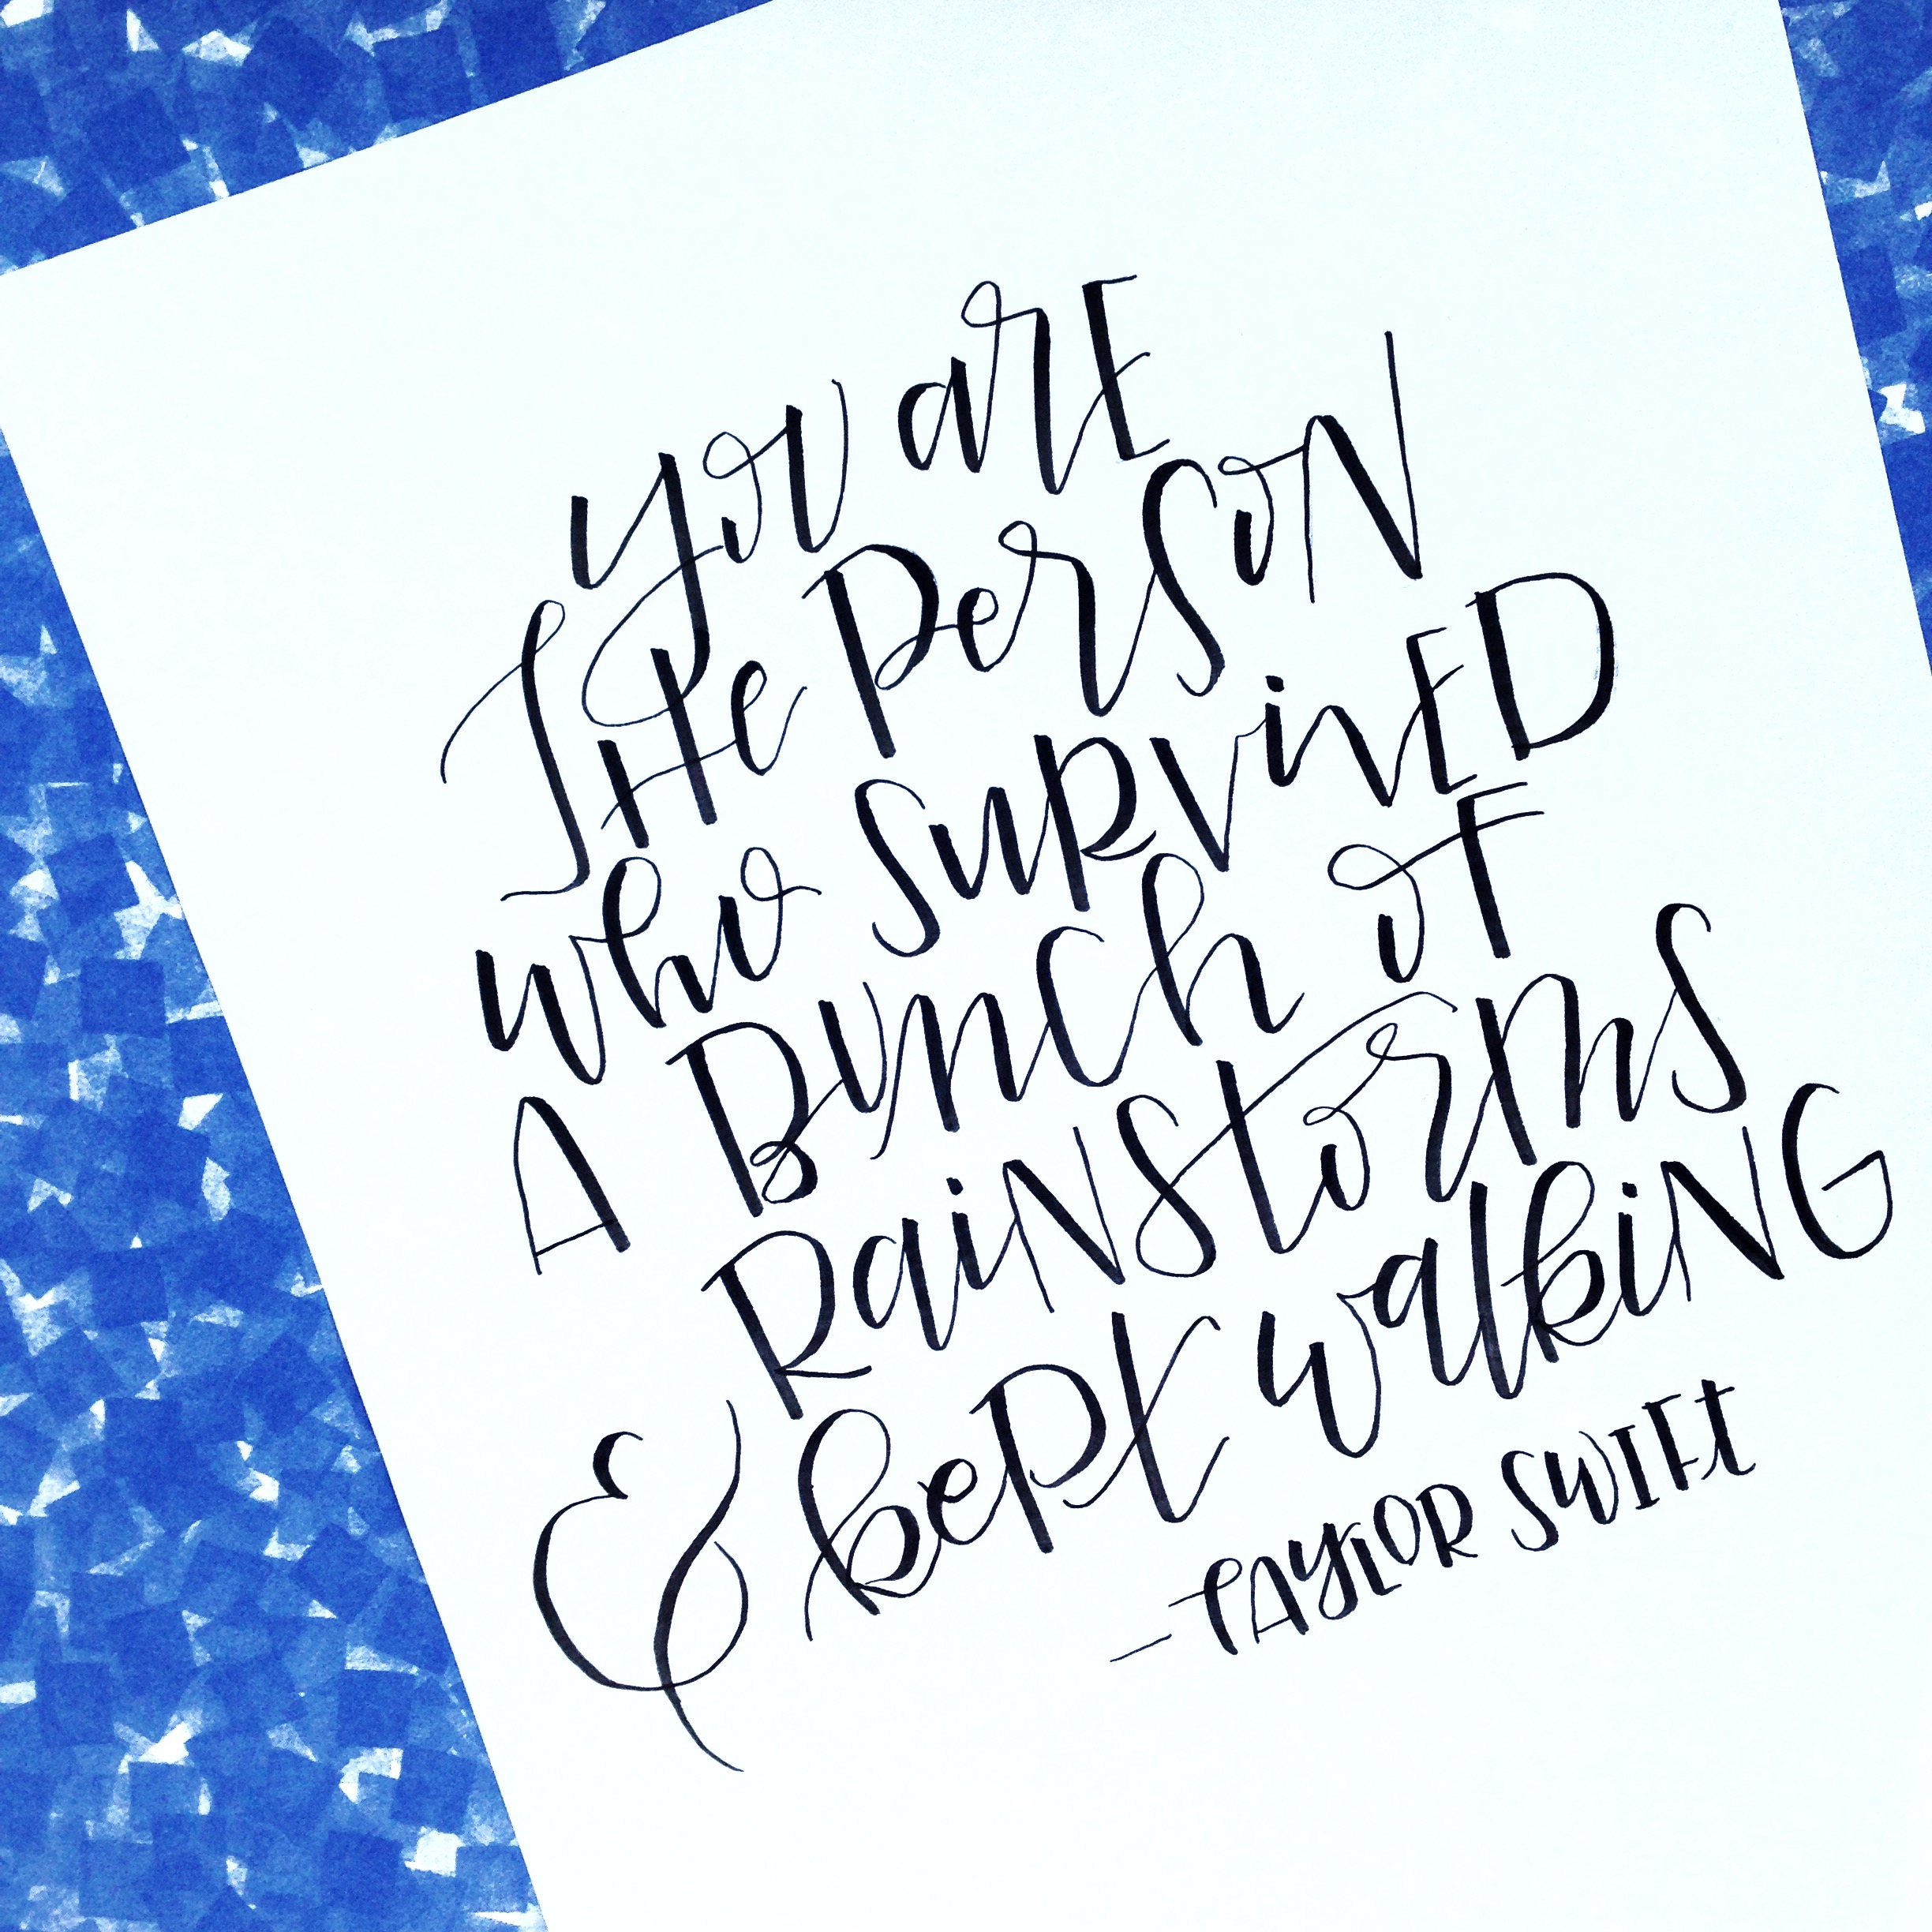 you arE
THe PersoN
who suRvivED
A Bunch oF
RaiNstorms
& kePt walkiNG
-TAYLOR SWIFt